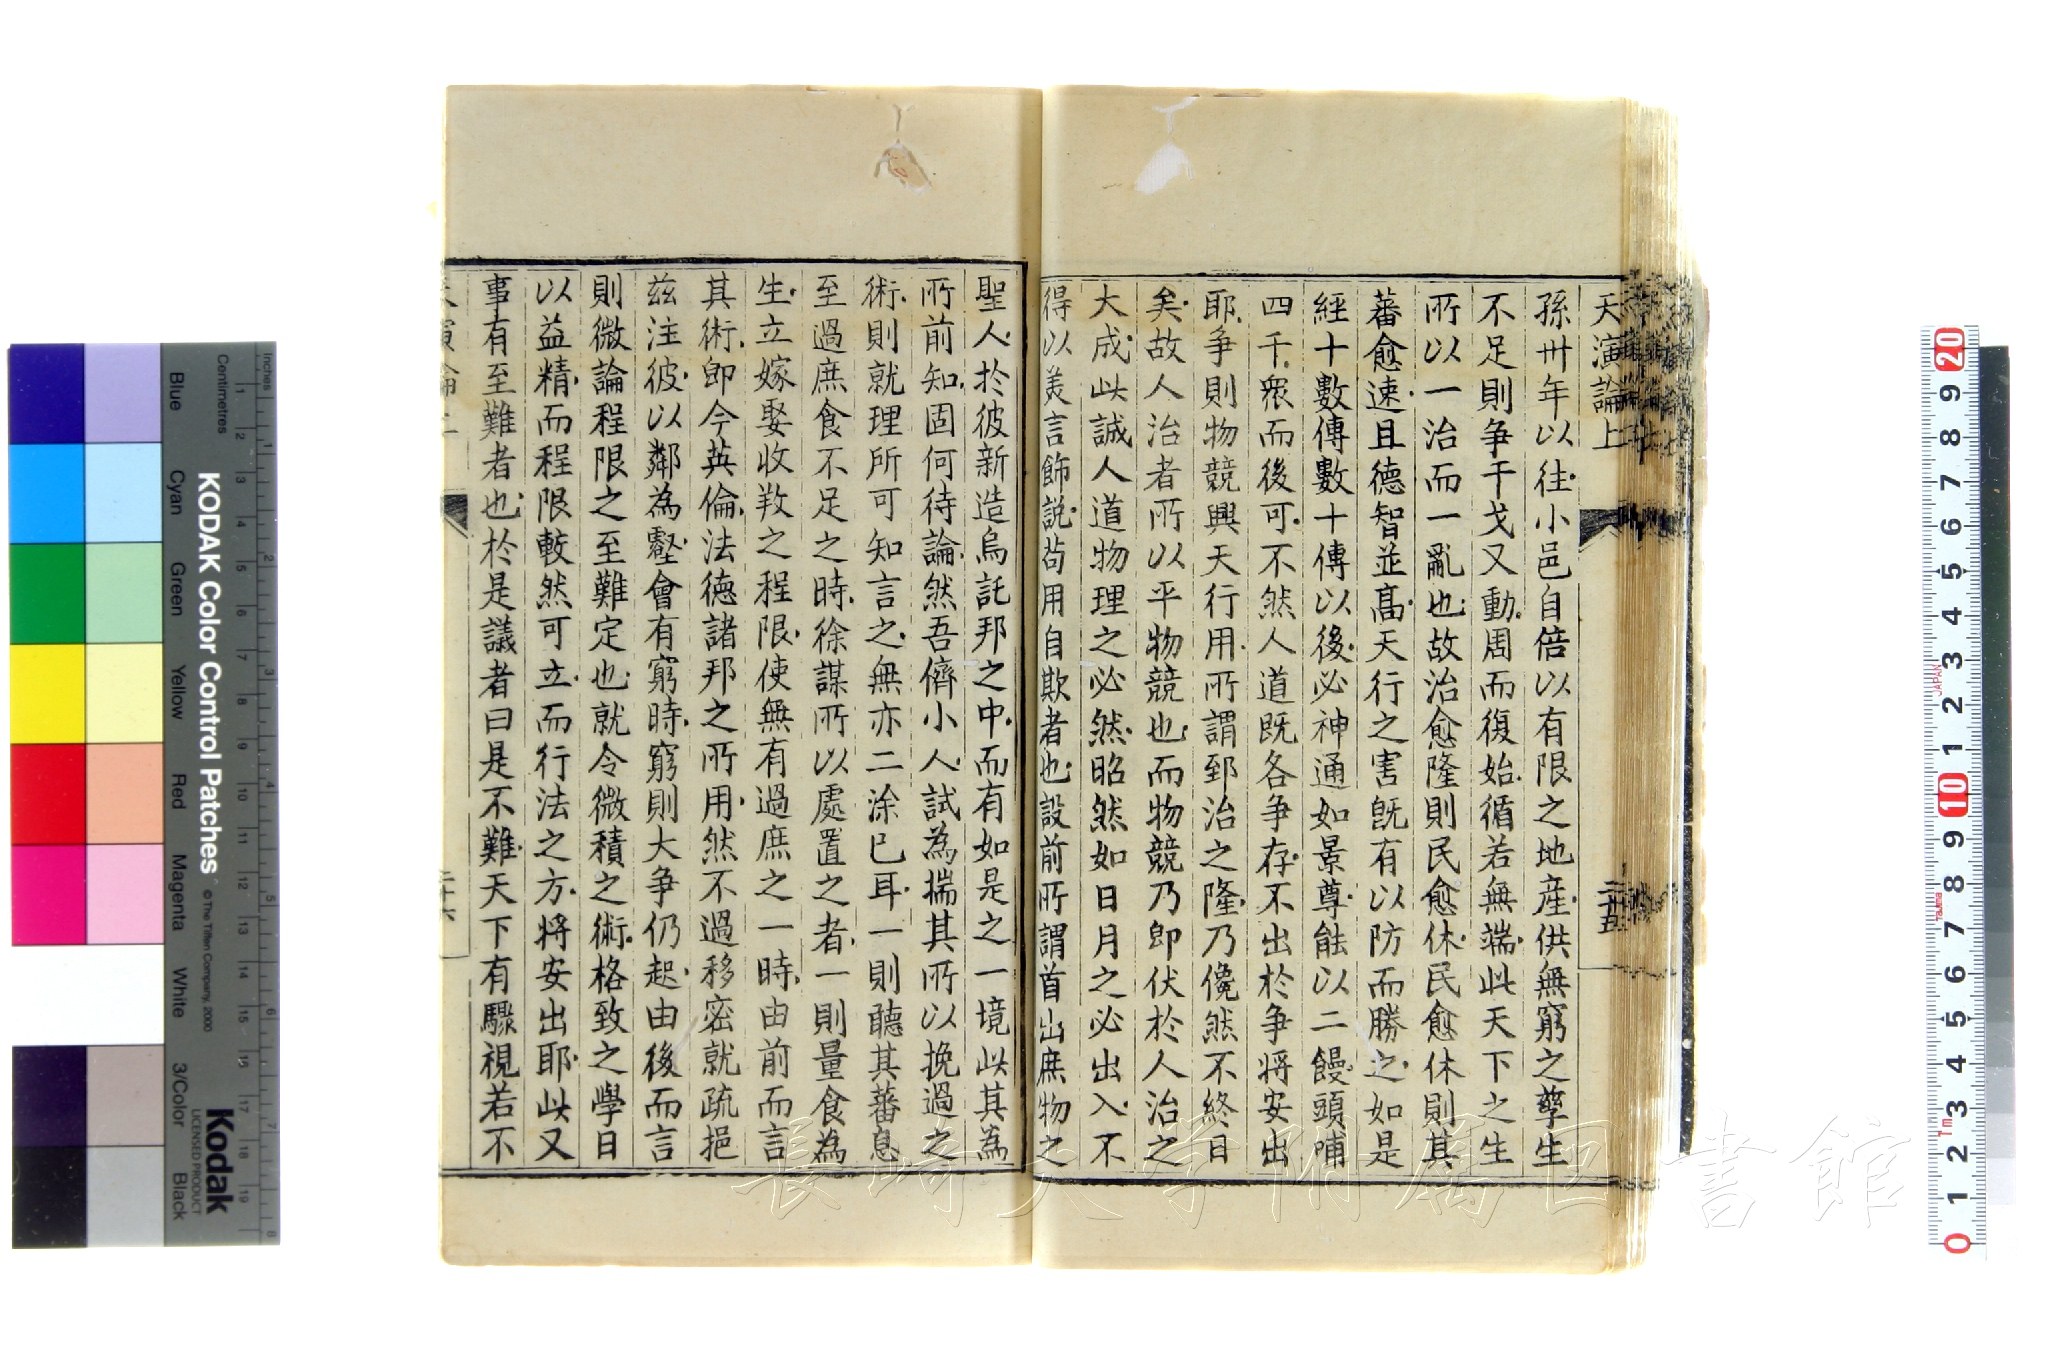 天演論上
二十五
孫卅年以往小邑自倍以有限之地產供無窮之孳生
不足則争干戈又動周而復始循若無端此天下之生
所以一治而一亂也故治愈隆則民愈休民愈休則其
蕃愈速且德智並高天行之害既有以防而勝之如是
經十數傳數十傳以後必神通如景尊能以二饅頭哺
四千衆而後可不然人道既各争存不出於争將安出
耶争則物競興天行用所謂郅治之隆乃儳然不終日
矣故人治者所以平物競也而物競乃即伏於人治之
大成此誠人道物理之必然昭然如日月之必出入不
得以美言飾說苟用自欺者也設前所謂首出庶物之
聖人於彼新造烏託邦之中而有如是之一境此其為
所前知固何待論然吾儕小人試為揣其所以挽過之
術則就理所可知言之無亦二涂已耳一則聽其蕃息
至過庶食不足之時徐謀所以處置之者一則量食為
生立嫁娶收教之程限使無有過庶之一時由前而言
其術即今英倫法德諸邦之所用然不過移密就疏挹
茲注彼以鄰為壑會有窮時窮則大争仍起由後而言
則微論程限之至難定也就令微積之術格致之學日
以益精而程限較然可立而行法之方將安出耶此又
事有至難者也於是議者曰是不難天下有驟視若不
二十六
長崎大学附属図書館
KODAK Color Control Patches
© The Tiffen Company, 2000
Kodak
LICENSED PRODUCT
Inches
Centimetres
Blue
Cyan
Green
Yellow
Red
Magenta
White
3/Color
Black
JAPAN
Tajima